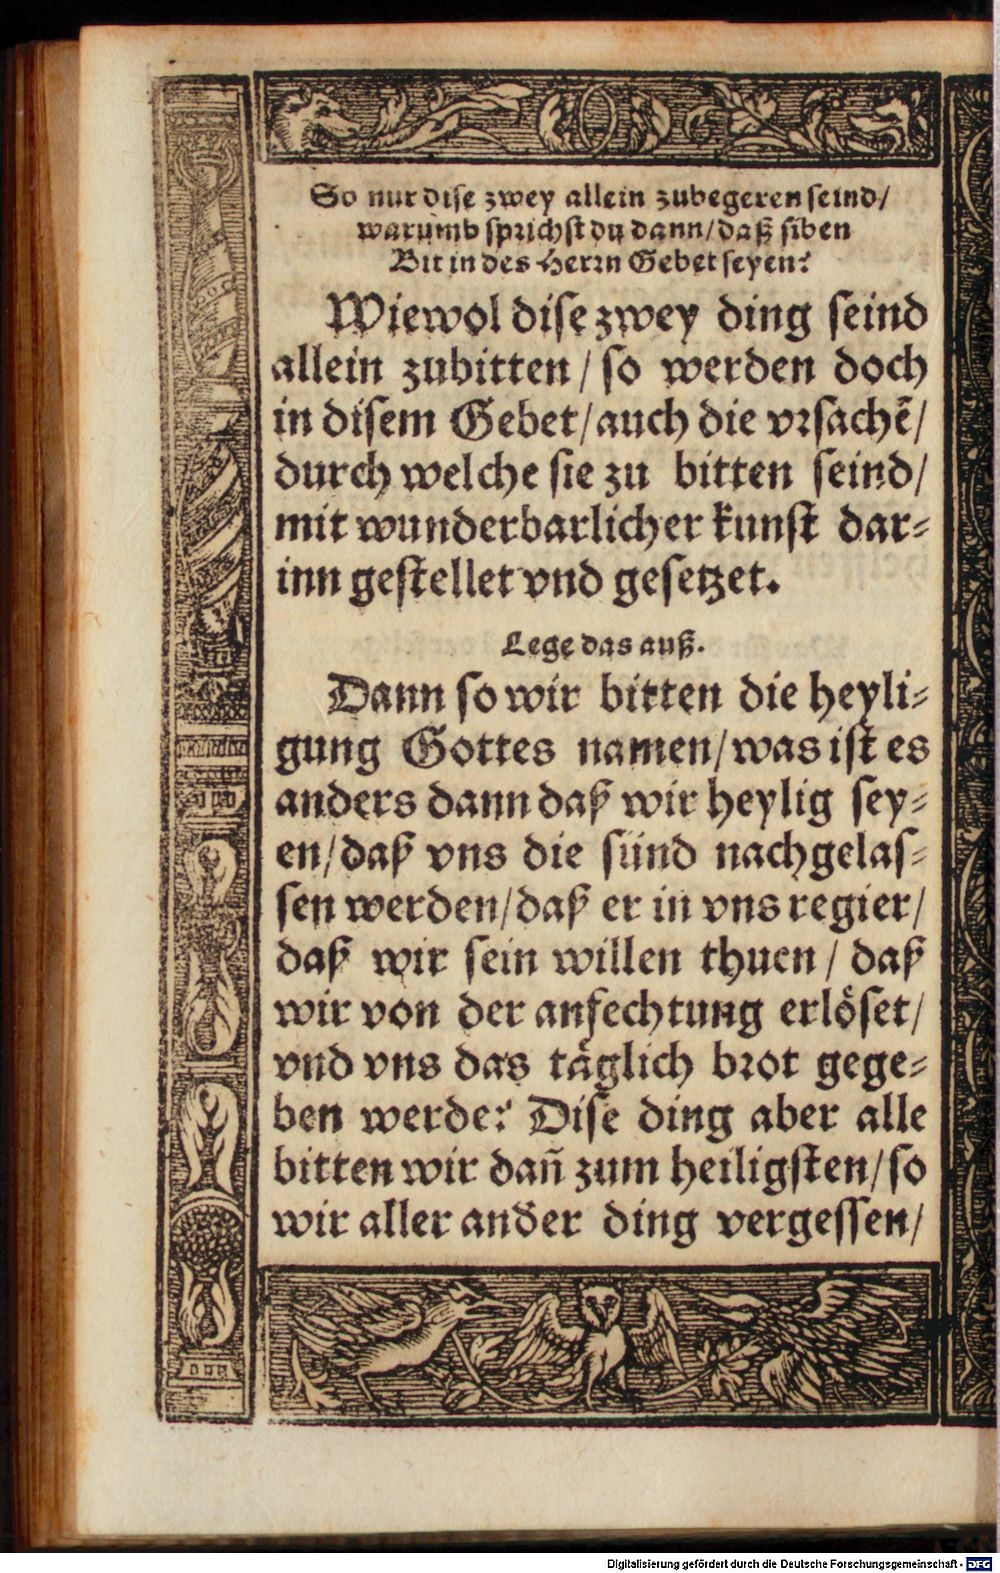 So nur dise zwey allein zubegeren seind/
warumb sprichst du dann/daß siben
Bit in des Herrn Gebet seyen?
Wiewol dise zwey ding seind
allein zubitten/so werden doch
in disem Gebet/auch die vrsachẽ/
durch welche sie zu bitten seind/
mit wunderbarlicher kunst dar⸗
inn gestellet vnd gesetzet.
Lege das auß.
Dann so wir bitten die heyli⸗
gung Gottes namen/was ist es
anders dann daß wir heylig sey⸗
en/daß vns die sünd nachgelas⸗
sen werden/daß er in vns regier/
daß wir sein willen thuen/daß
wir von der anfechtung erlöset/
vnd vns das täglich brot gege⸗
ben werde? Dise ding aber alle
bitten wir dañ zum heiligsten/so
wir aller ander ding vergessen/
Digitalisierung gefördert durch die Deutsche Forschungsgemeinschaft - DFG